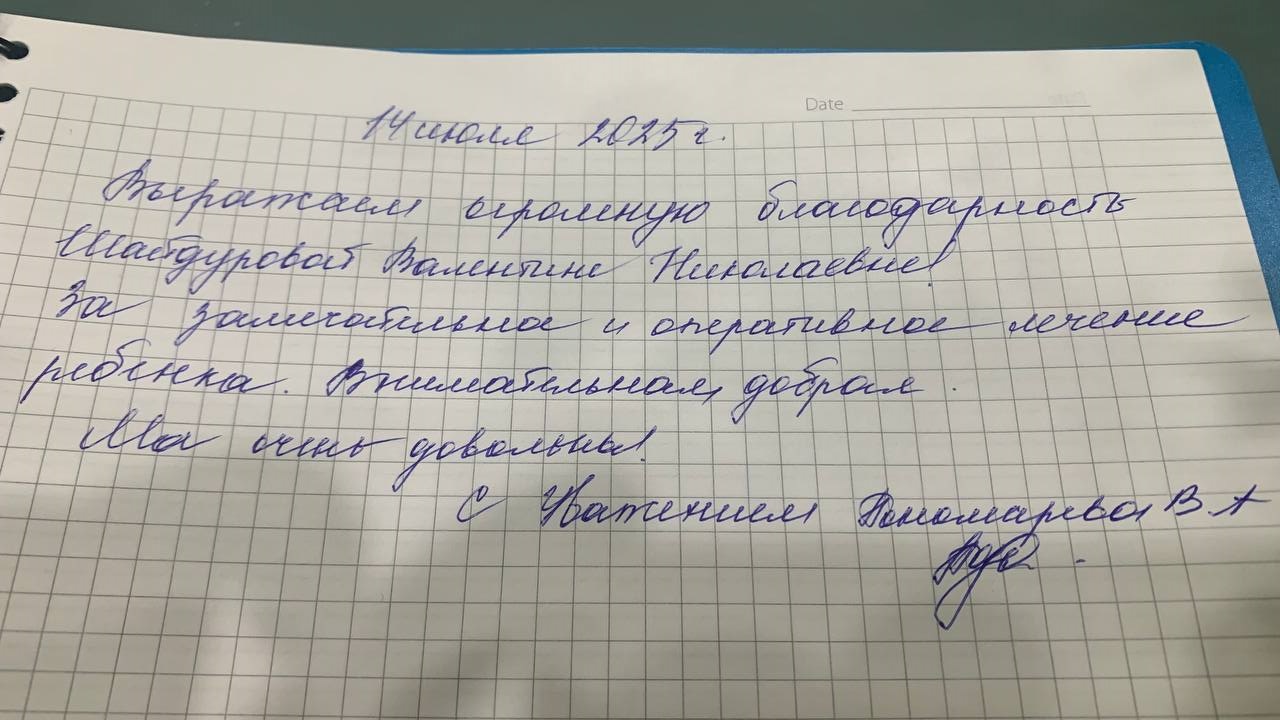 Date
14 июля 2025 г.
Выражаем огромную благодарность
Шайдуровой Валентине Николаевне!
За замечательное и оперативное лечение
ребёнка. Внимательная, добрая.
Мы очень довольны!
С Уважением Пономарева В. А